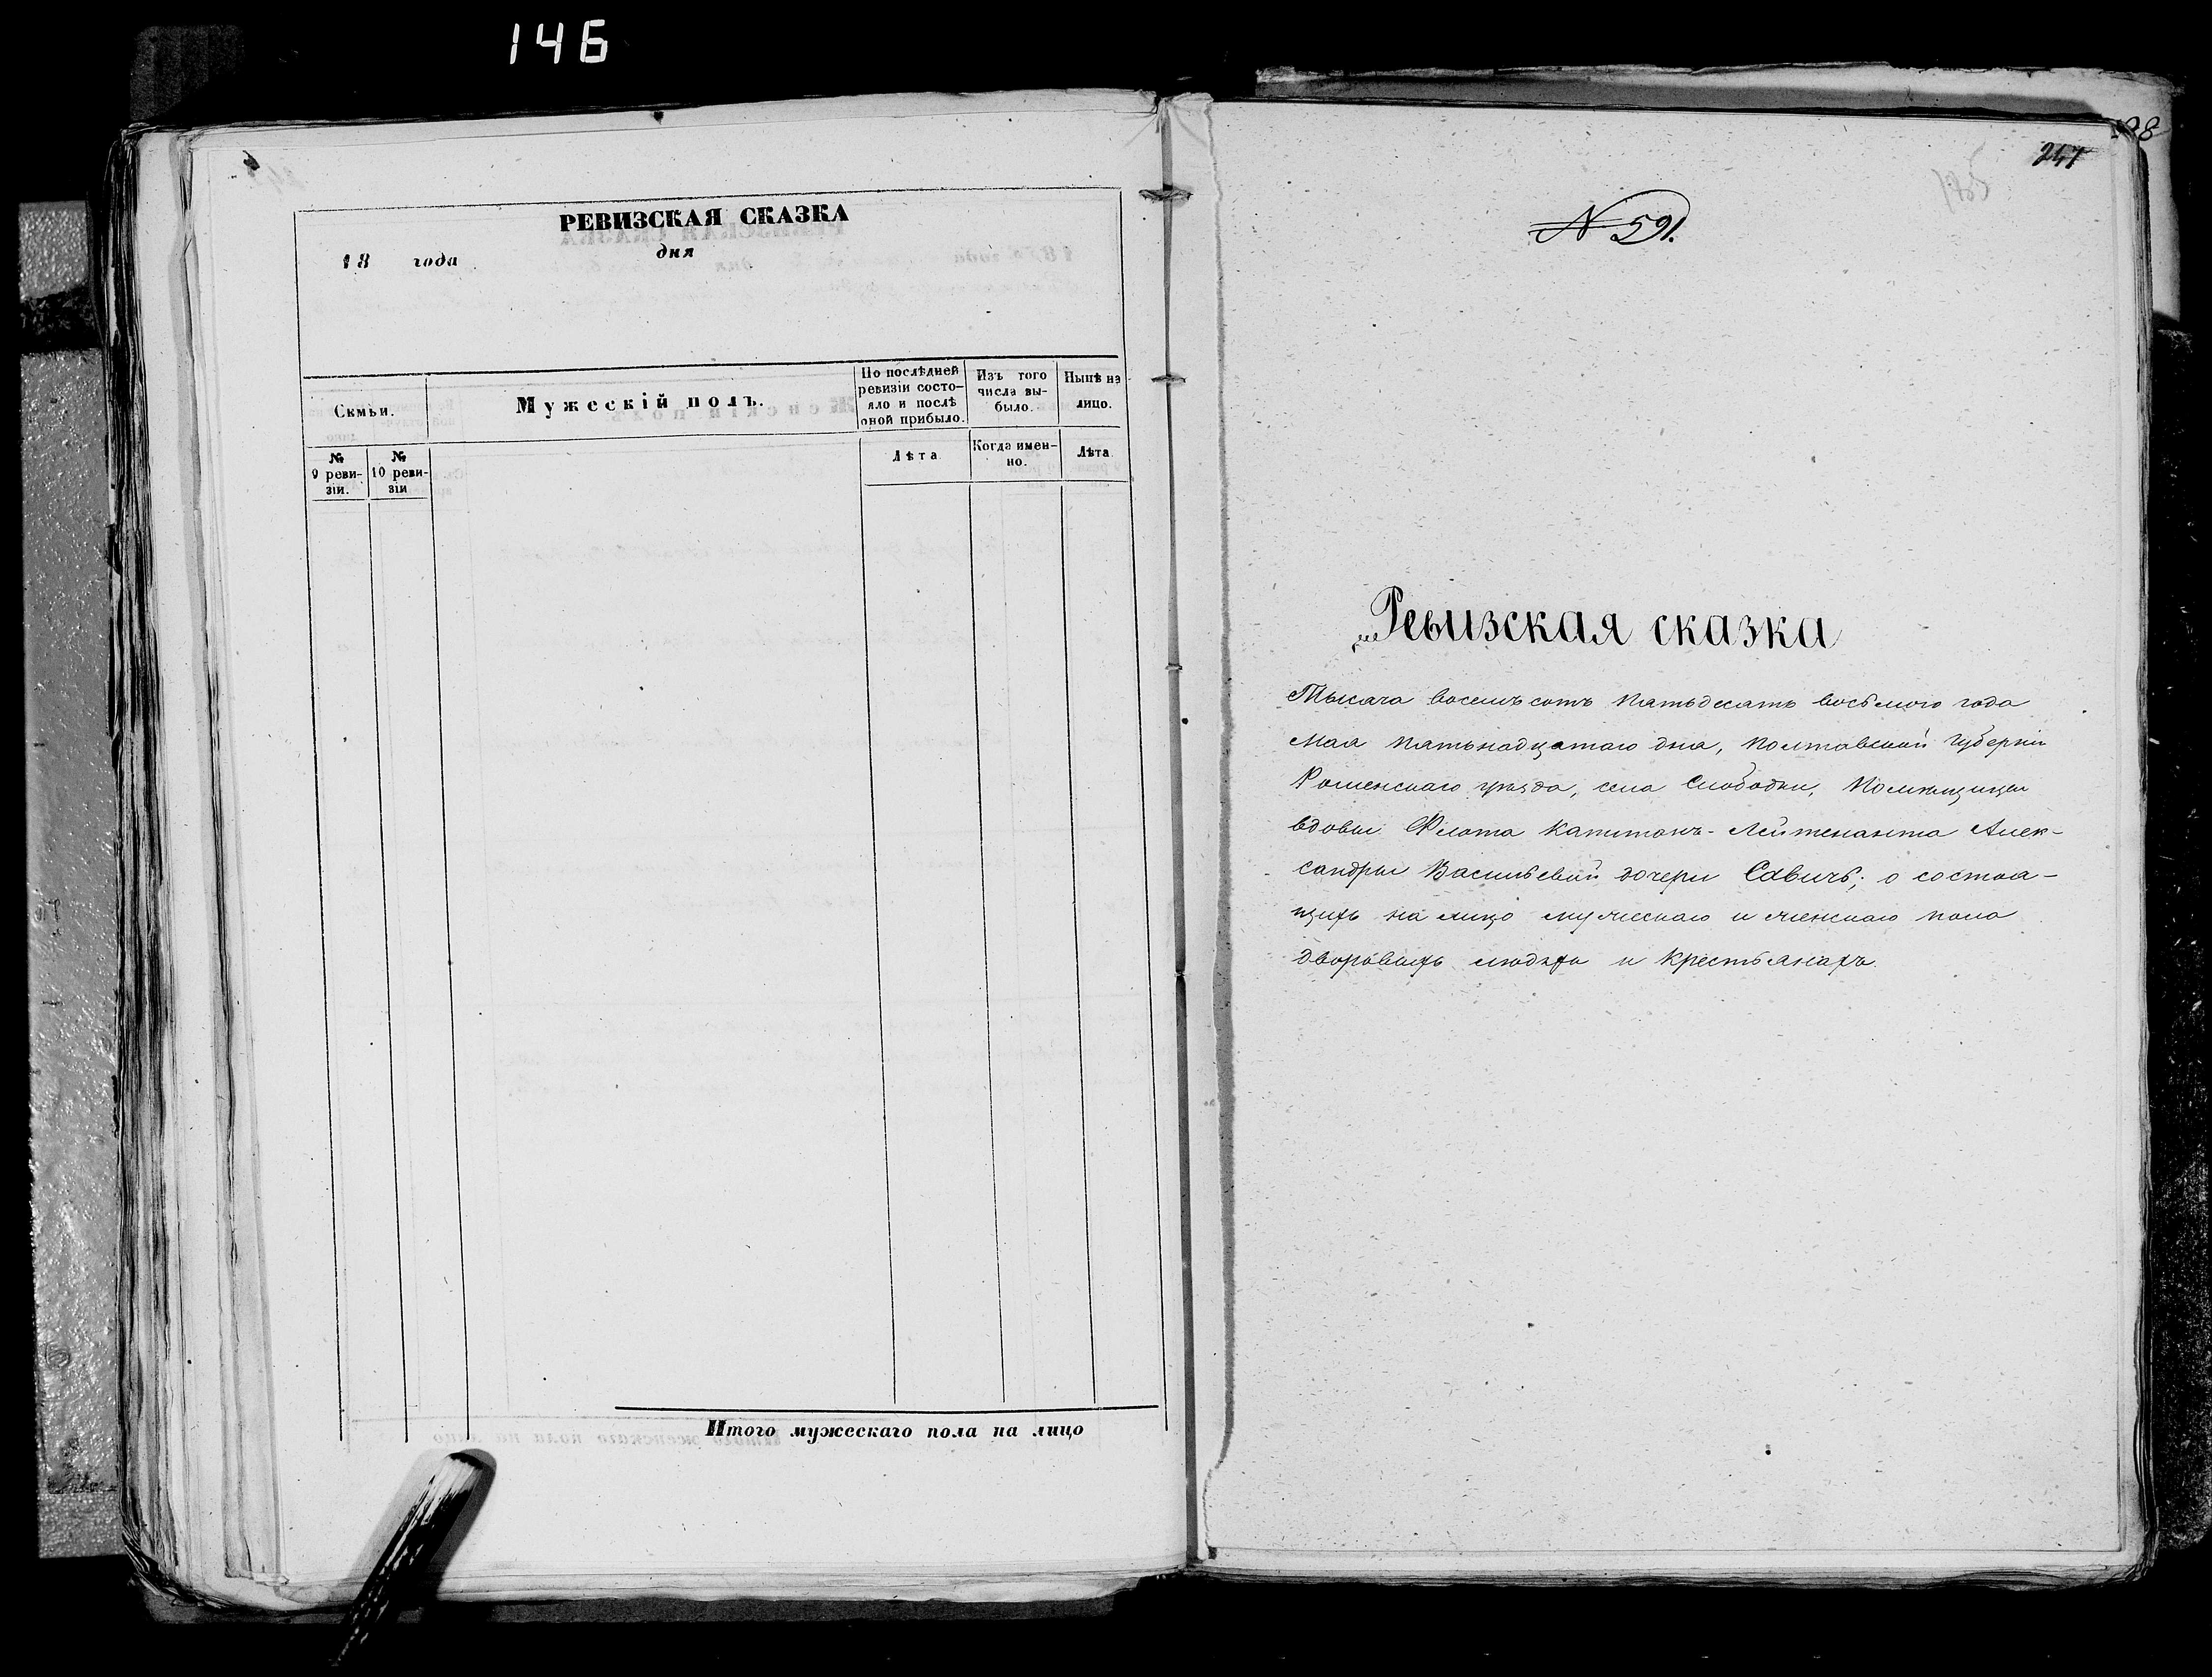 146
РЕВИЗСКАЯ СКАЗКА
18 года дня
Семьи.
Мужескій полъ.
По послѣдней ревизіи состо-
яло и послѣ
оной прибыло.
Изъ того
числа вы-
было.
Нынѣ на
лицо.
№
9 реви-
зіи.
№
10 реви-
зіи
Лѣта
Когда имен-
но.
Лѣта
Итого мужескаго пола на лицо
247
185
N 591.
Ревизская сказка
Тысяча восемъ сотъ пятьдесятъ восьмого года
мая пятьнадцатаго дня, Полтавской губерніи
Роменскаго уѣзда, села Слободки, Помѣщицы
вдовы Флота Капитанъ-Лейтенанта Алек-
сандры Васильевой дочери Савичъ; о состоя-
щихъ на лицо мужескаго и женскаго пола
дворовыхъ людяхъ и крестьянахъ.